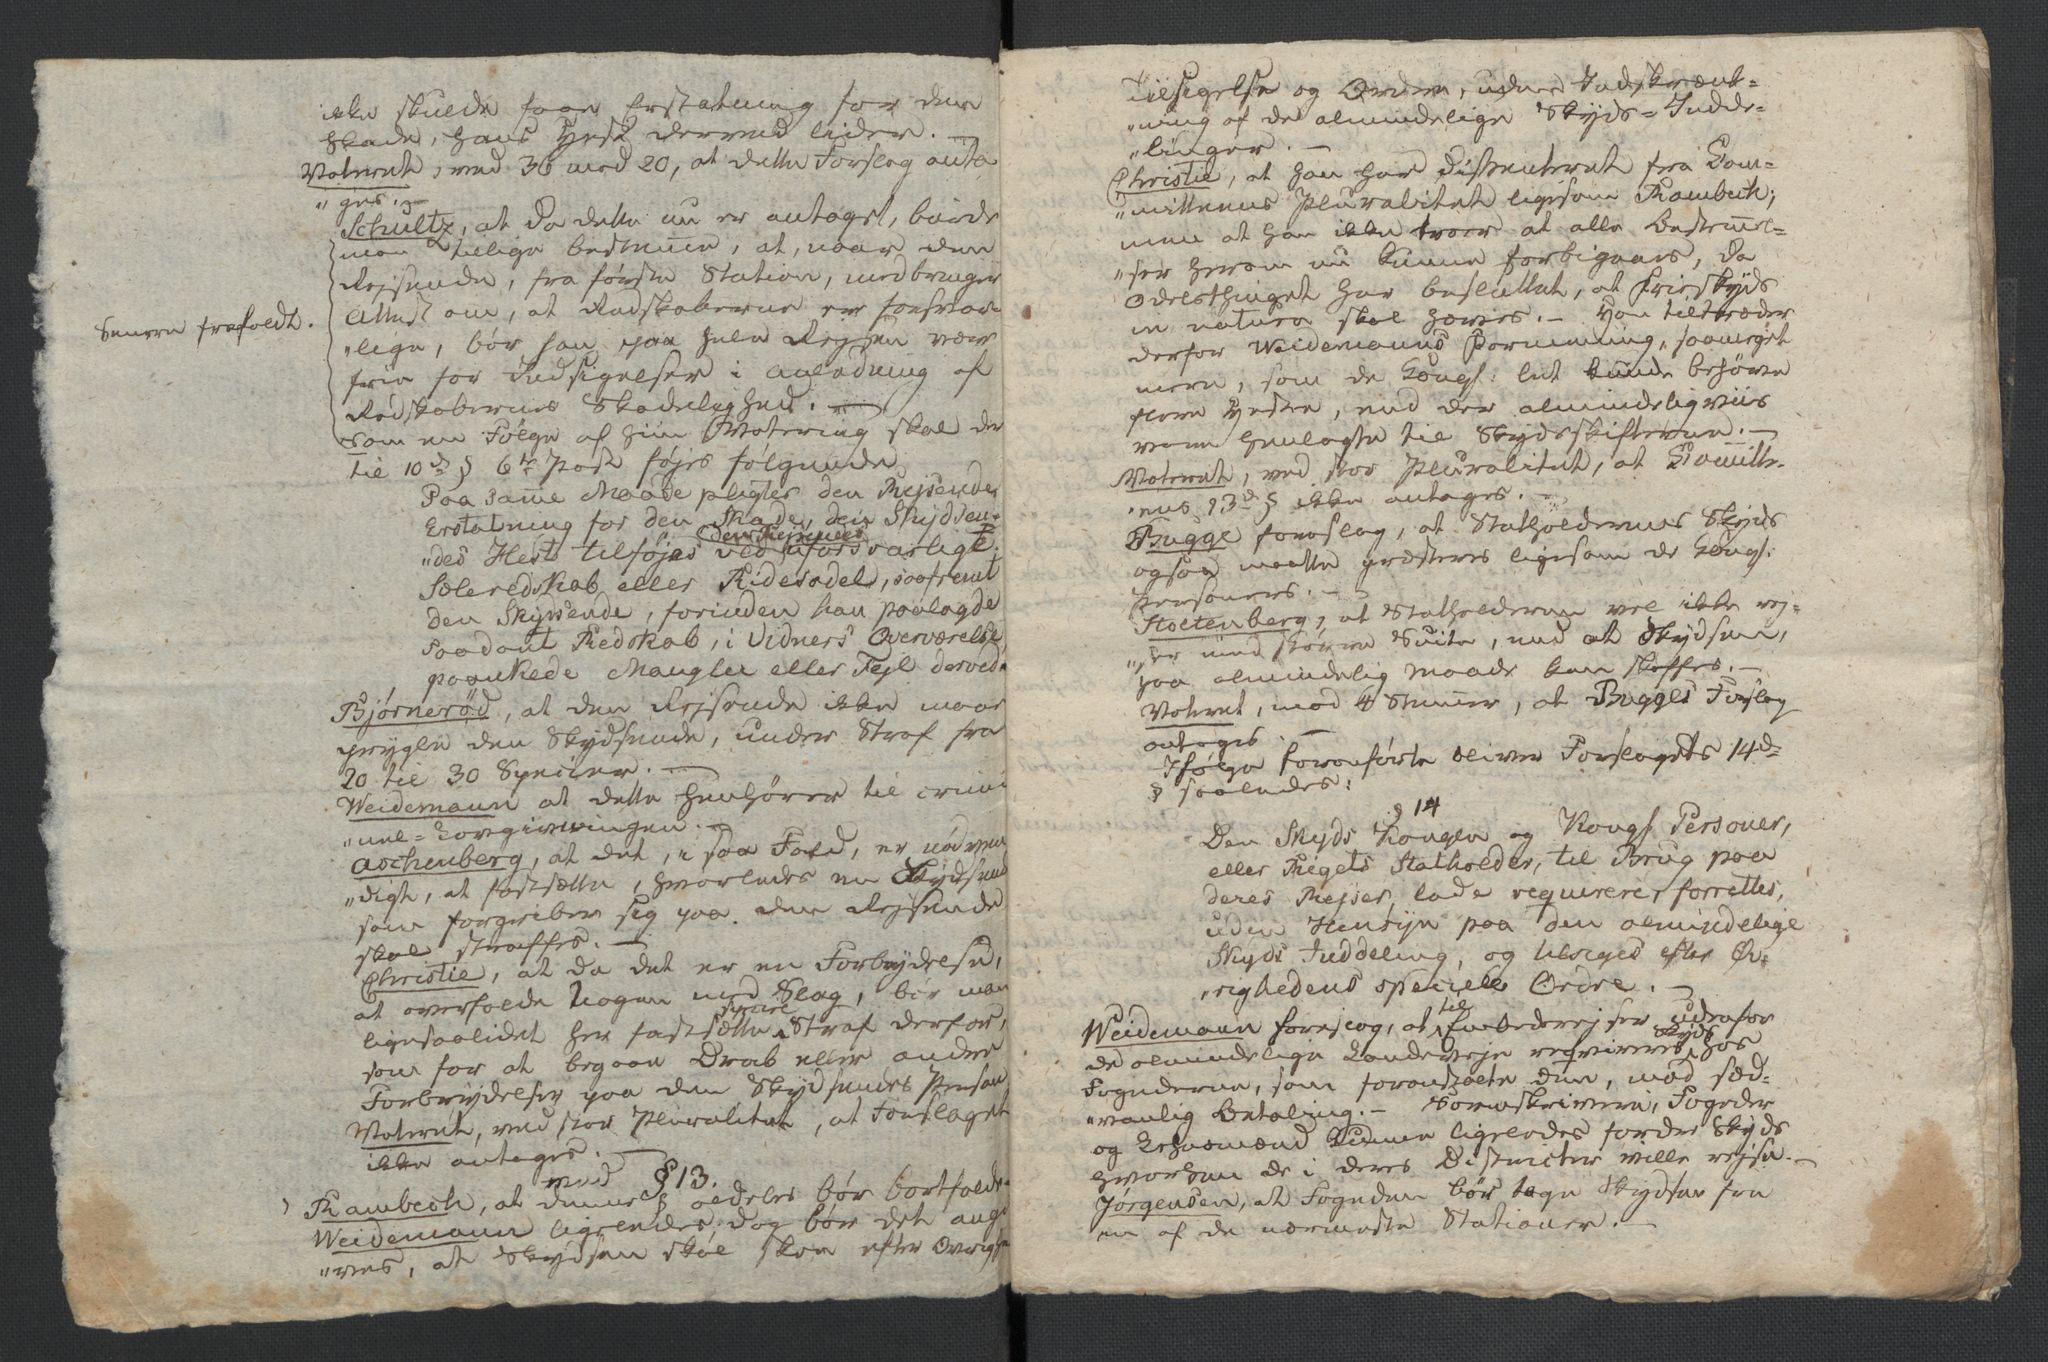 ikke skulde faae Erstatning for den
Skade, hans Hest derved lider. —
Voteret, ved 36 mod 20, at dette Forslag anta
„ges. —
Schultz, at da dette nu er antaget, burde
man tillige bestemme, at, naar den
Rejsende, fra første Station, medbringer
Attest om, at Redskaberne er forsvar-
„lige, bør han paa hele Rejsen være
frie for Indsigelser i Anledning af
Redskabernes Skadelighed. —
Senere frafaldt.
Som en Følge af hiin Votering skal der
til 10de § 6te Post føjes følgende
Paa samme Maade pligter den Rejsende
Erstatning for den Skade, den Skydsen-
„des Hest tilføjes ved den Rejsendes uforsvarlige
Sæleredskab eller Ridesadel, saafremt
den Skydsende, forinden han paalagde
saadant Redskab, i Vidners Overværelse,
paankede Mangler eller Fejl derved.
Bjørnerød, at den Rejsende ikke maae
prygle den Skydsende, under Straf fra
20 til 30 Specier. —
Weidemann at dette henhører til crimi
„nel-Lovgivningen. —
Aschenberg, at det, i saa Fald, er nødven
„digt, at fastsætte, hvorledes en Skydsende
som forgriber sig paa den Rejsende
skal straffes. —
Christie, at da det er en Forbrydelse,
at overfalde Nogen med Slag, bør man
ligesaalidet her fastsætte speciel Straf derfor,
som for at begaae Drab eller andre
Forbrydelser paa den Skydsendes Person
Voteret, ved stor Pluralitet, at Forslaget
ikke antages. —
ved § 13.
Rambech, at denne § aldeles bør bortfalde.
Weidemann ligeledes; dog bør det angi
„ves, at Skydsen skal skee efter Øvrighe
Tilsigelse og Ordre, uden Indskrænk-
„ning af de almindelige Skyds-Indde-
„linger. —
Christie, at han har dissenteret fra Com-
„mitteens Pluralitet ligesom Rambech;
men at han ikke troer at alle Bestemmel-
„ser herom nu kunne forbigaaes, da
Odelsthinget har besluttet, at Frieskyds
in natura skal hæves. — Han tiltræder
derfor Weidemanns Formening, saameget
mere, som de Kongl: let kunde behøve
flere Heste, end der almindeligviis
vare henlagte til Skydsskifterne. —
Voteret, ved stor Pluralitet, at Committe-
„ens 13de § ikke antages. —
Bugge foreslog, at Statholderens Skyds
ogsaa maatte præsteres ligesom de Kongl:
Personers. —
Stoltenberg, at Statholderen vel ikke rej-
„ser med større Suite, end at Skydsen,
paa almindelig Maade kan skaffes. —
Voteret, mod 4 Stemmer, at Bugges Forslag
antages. —
Ifølge foranførte bliver Forslagets 14de
§ saaledes:
§ 14
Den Skyds Kongen og Kongl. Personer,
eller Rigets Statholder, til Brug paa
deres Rejser, lade requirere, forrettes,
uden Hensyn paa den almindelige
Skyds Inddeling, og tilsiges efter Øv-
„righedens specielle Ordre. —
Weidemann foreslog, at til Embedsrejser udenfor
de almindelige Landeveje requireres Skyds hos
Fogderne, som foranstalte den, mod sæd-
„vanlig Betaling. — Sorenskrivere, Fogder
og Lehnsmænd kunne ligeledes fordre Skyds
hvorhen de i deres Districter ville rejse. —
Jørgensen, at Fogden bør tage Skydsen fra
en af de nærmeste Stationer. —